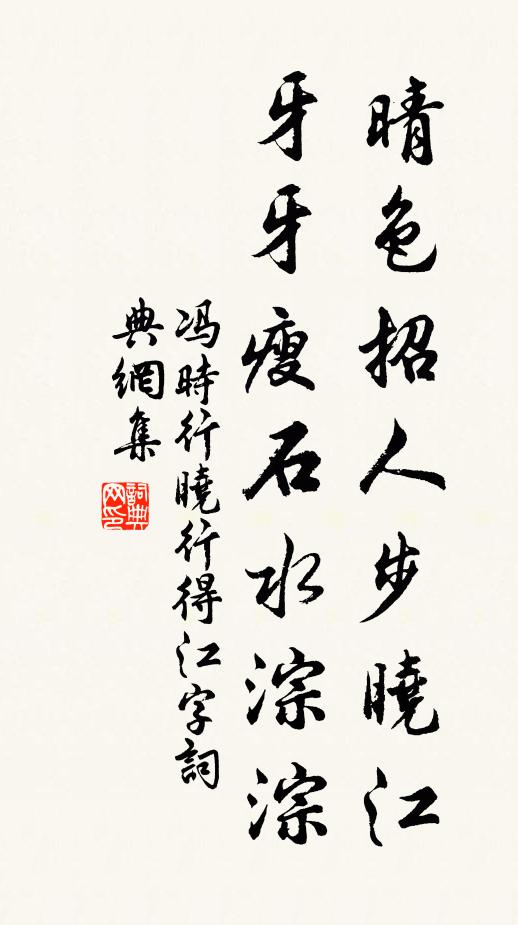 晴色招人步曉江
牙牙瘦石水淙淙
冯時行曉行得江字詞
典網集
詞典
网印